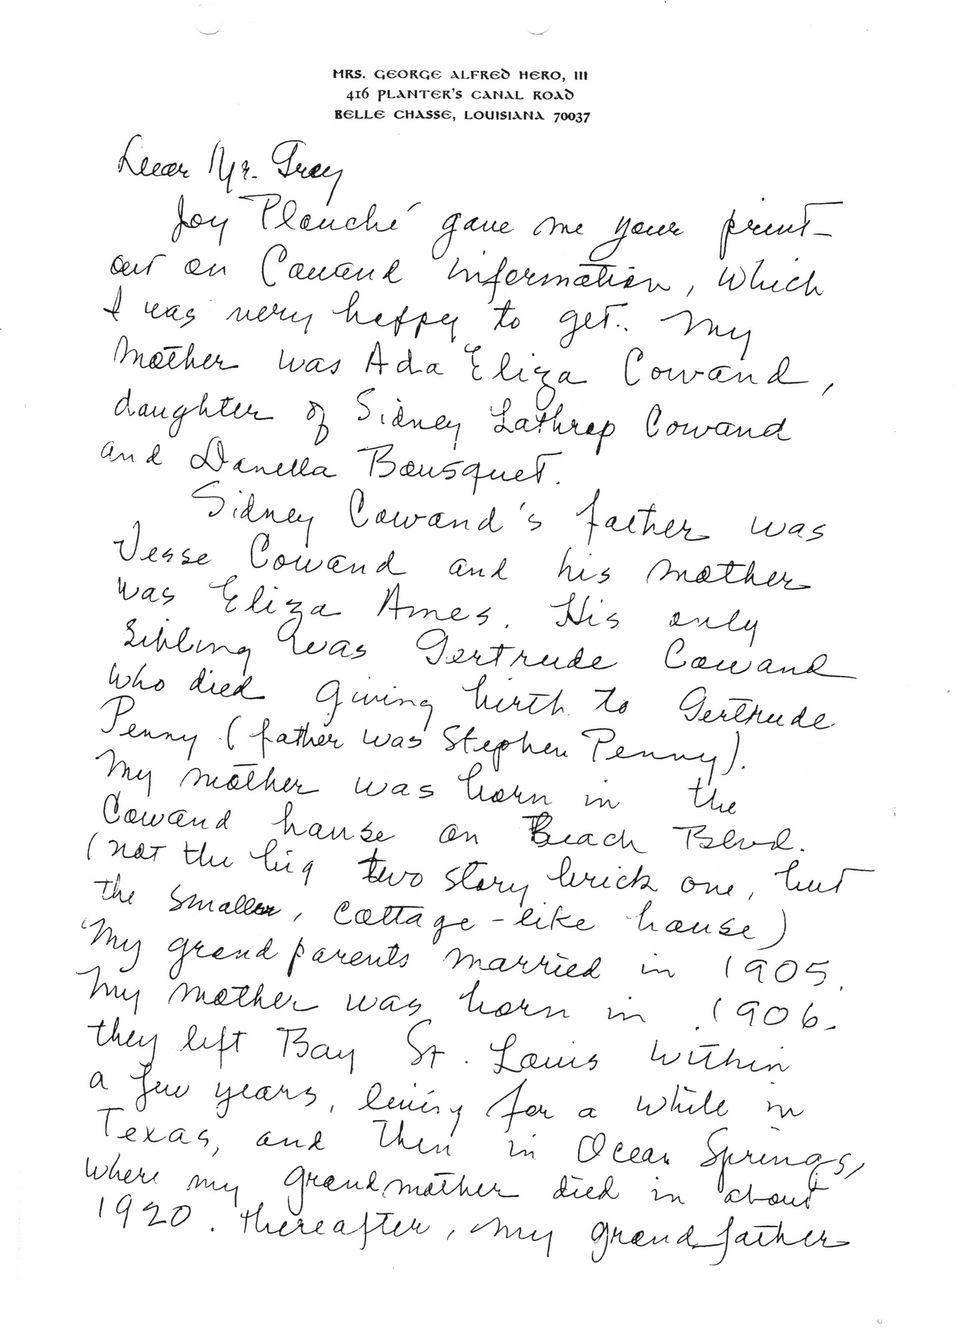 MRS. GEORGE ALFRED HERO, III
416 PLANTER'S CANAL ROAD
BELLE CHASSE, LOUISIANA 70037
Dear Mr. Gray
Joy Plauché gave me your print-
out on Cowand information, which
I was very happy to get. My
mother was Ada Eliza Cowand,
daughter of Sidney Lathrop Cowand
and Danella Bousquet.
Sidney Cowand's father was
Jesse Cowand and his mother
was Eliza Ames. His only
sibling was Gertrude Cowand
who died giving birth to Gertrude
Penny (father was Stephen Penny).
My mother was born in the
Cowand house on Beach Blvd.
(not the big two story brick one, but
the smaller, cottage-like house)
My grandparents married in 1905.
My mother was born in 1906.
they left Bay St. Louis within
a few years, living for a while in
Texas, and then in Ocean Springs,
where my grandmother died in about
1920. thereafter, my grandfather